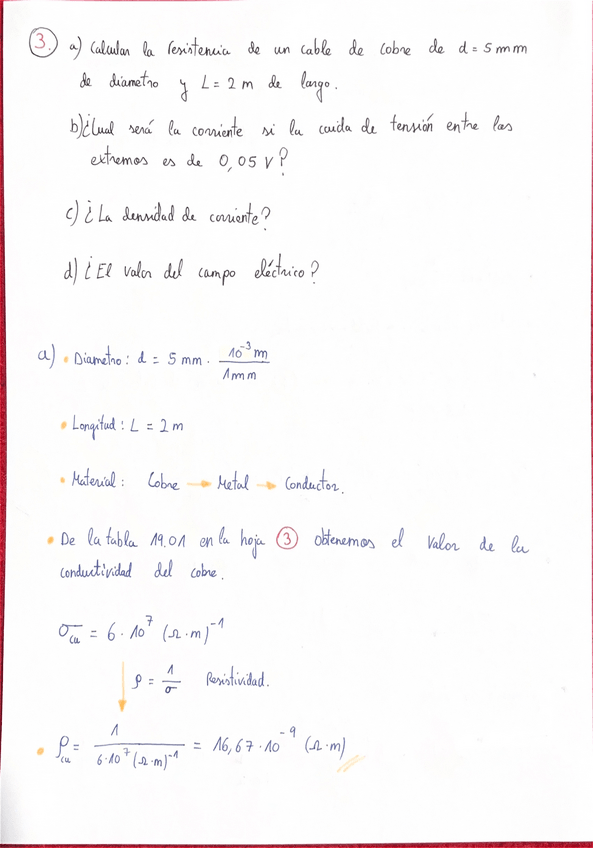 3. a) Calcular la resistencia de un cable de cobre de d = 5 mm
de diametro y L = 2 m de largo.
b) ¿Cual será la corriente si la caida de tensión entre los
extremos es de 0,05 V?
c) ¿La densidad de corriente?
d) ¿El valor del campo eléctrico?
a) • Diametro: d = 5 mm · 10⁻³ m / 1 mm
• Longitud: L = 2 m
• Material: Cobre → Metal → Conductor.
• De la tabla 19.01 en la hoja 3 obtenemos el valor de la
conductividad del cobre.
σcu = 6 · 10⁷ (Ω·m)⁻¹
ρ = 1/σ Resistividad.
• ρcu = 1 / 6·10⁷ (Ω·m)⁻¹ = 16,67·10⁻⁹ (Ω·m)